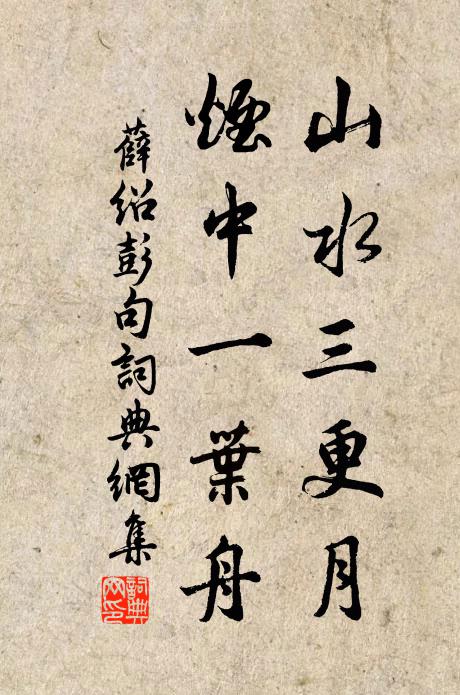 山水三更月
煙中一葉舟
薛紹彭句詞典網集
詞典
网印